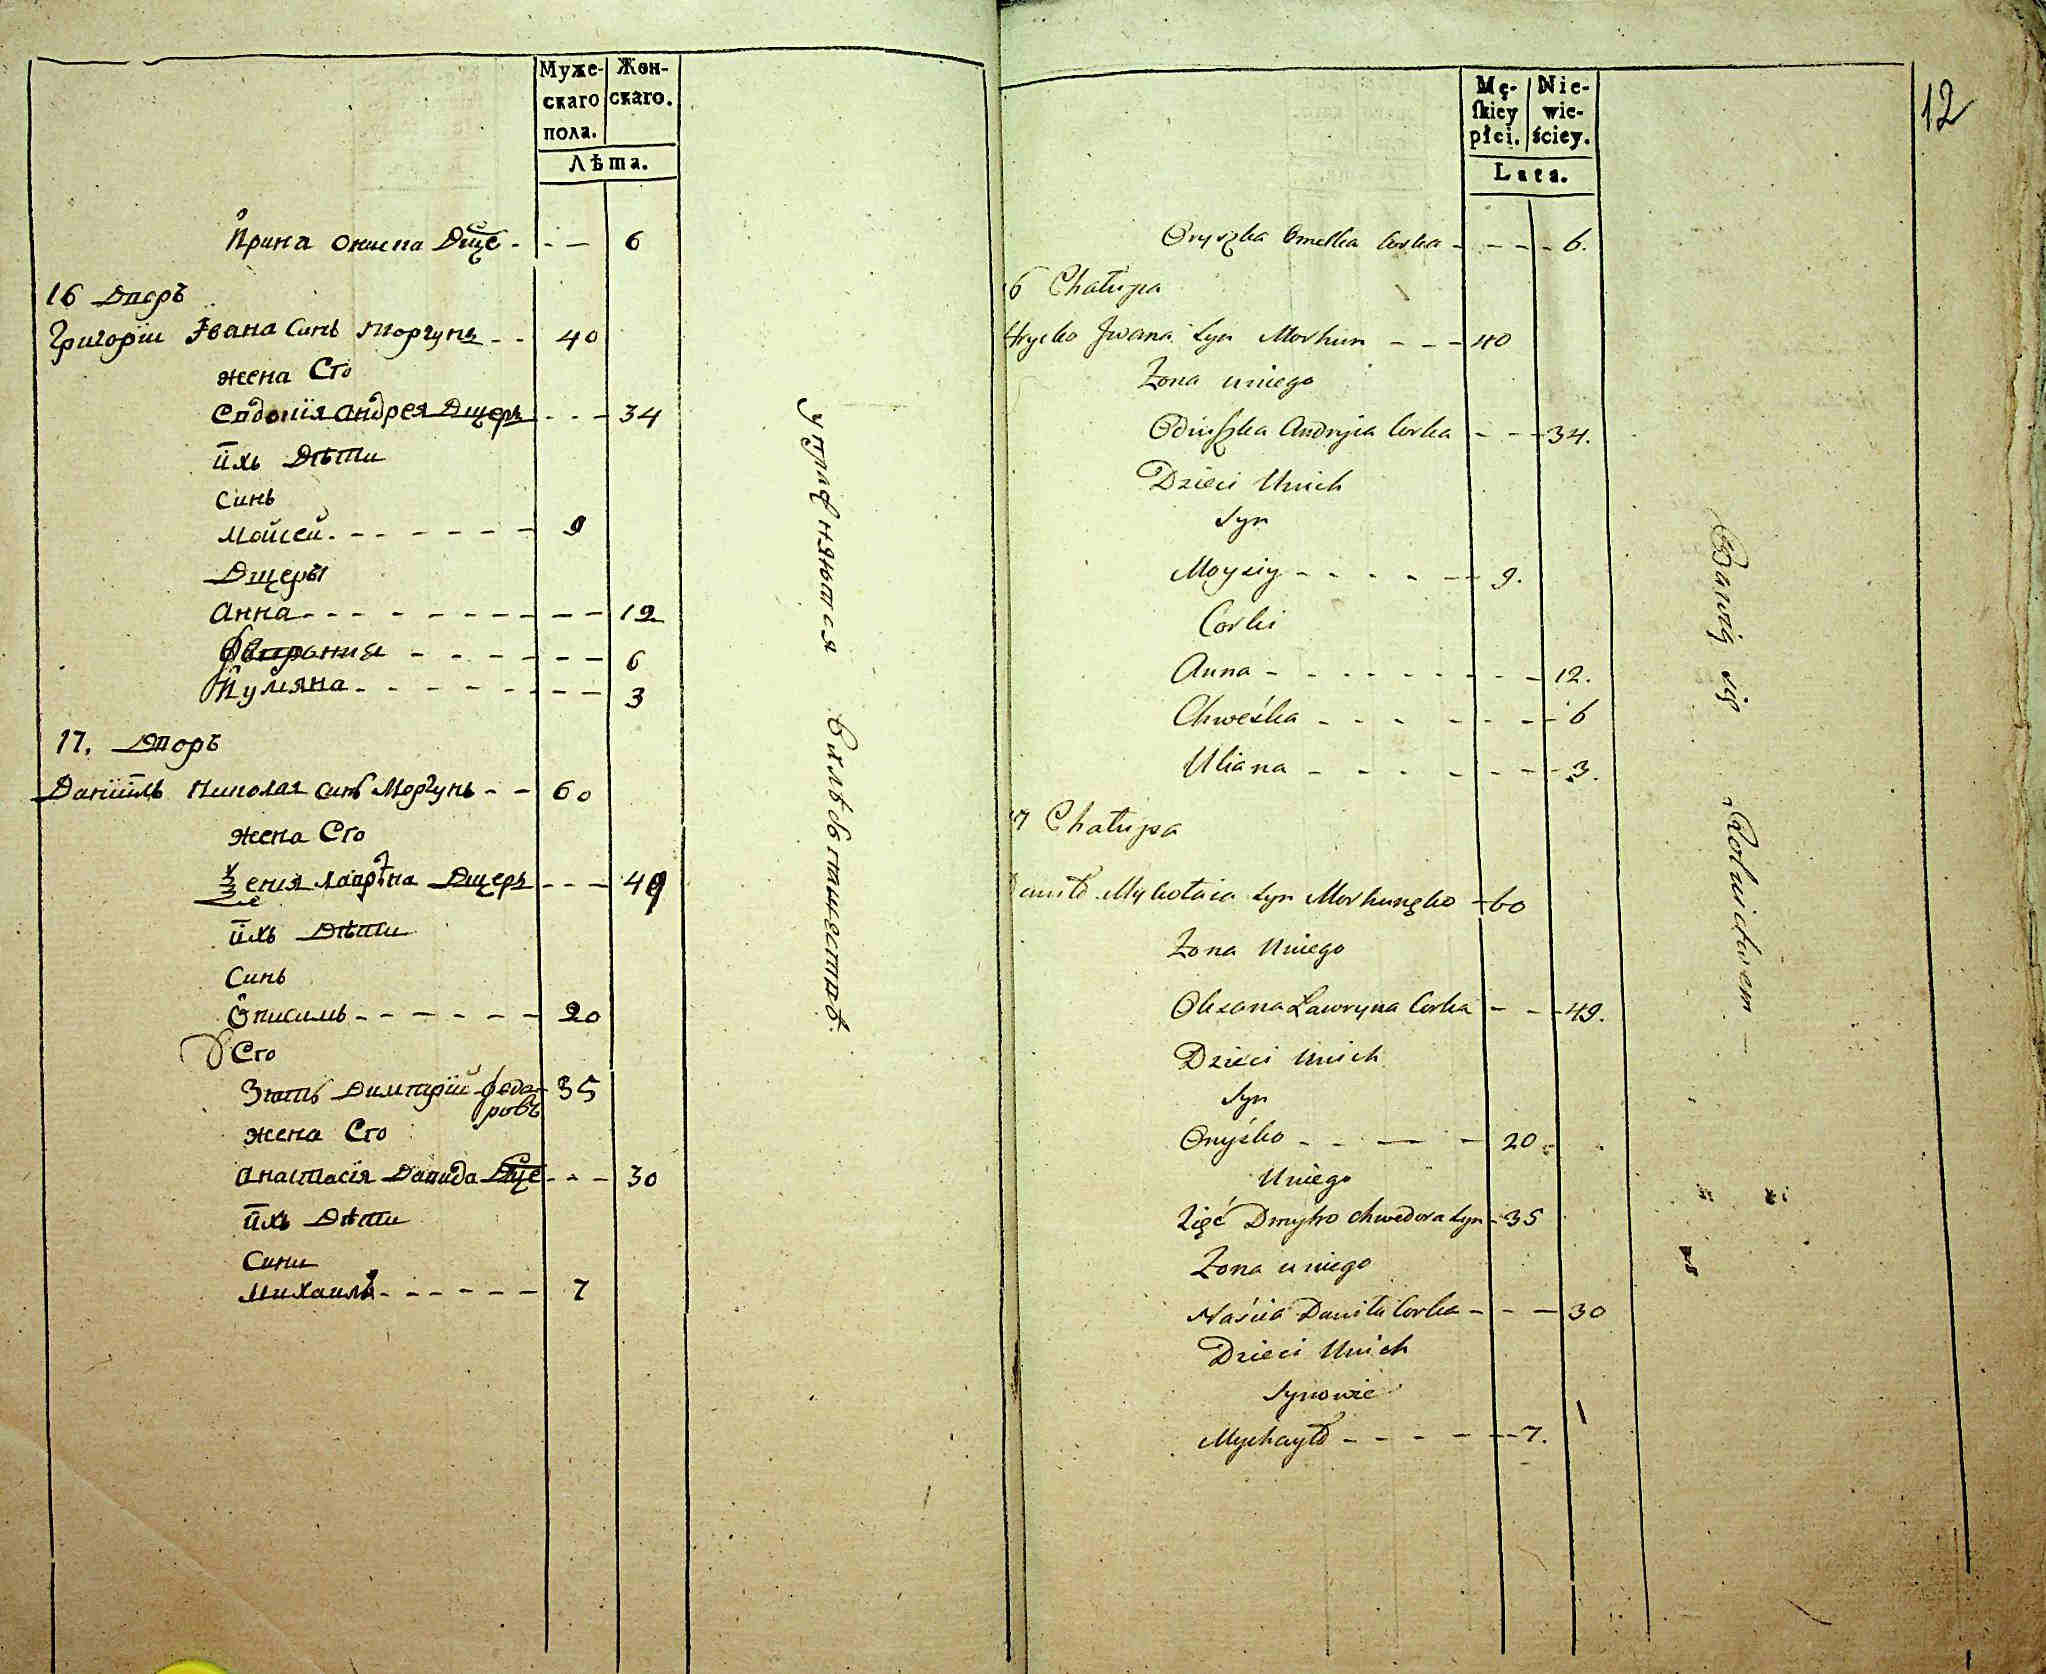 Муже- Жен-
скаго скаго.
пола.
Лѣта.
Ирина Дще - - — 6
16 Дворъ
Григорїи Івана Синъ Моргунъ - - 40
жена Єго
Євдокїя андрея Дщерь - - - 34
ихъ Дѣти
Синъ
Мойсей - - - - - - 9
Дщеры
Анна - - - - - - - - 12
- - - - - - 6
Иулияна - - - - - - - 3
17. Дворъ
Данїилъ Николая синъ Моргунъ - - 60
жена Єго
Ѯенїя Лаврѣна Дщерь - - - 49
ихъ Дѣти
Синъ
Онисимъ - - - - - - 20
У Єго
Зять Димитрїй Федо- 35
ровъ
жена Єго
Анастасїя Данила Дще - - - 30
ихъ Дѣти
Сини
Михаилъ - - - - - - 7
упражняются
в хлѣбопашествѣ.
12
Mę- Nie-
skiey wie-
płci. ściey.
Lata.
Oryszka Omelka Corka - - - - 6.
6 Chałupa
Hryćko Jwana Syn Morhun - - - 40
Zona uniego
Odiuszka Andryia Corka - - - 34.
Dzieci Unich
Syn
Moysiy - - - - - - 9.
Corki
Anna - - - - - - - - 12.
Chweśka - - - - - - - 6
Uliana - - - - - - - 3.
7 Chałupa
Daniło Mykołaia Syn Morhunęko - 60
Zona Uniego
Oksana Ławryna Corka - - - 49.
Dzieci Unich
Syn
Onyśko - - — - 20.
Uniego
Zięć Dmytro Chwedora Syn - 35
Zona uniego
Naścia Daniła Corka - - — 30
Dzieci Unich
Synowie
Mychayło - - - - - - 7.
Bawią się Rolnictwem —